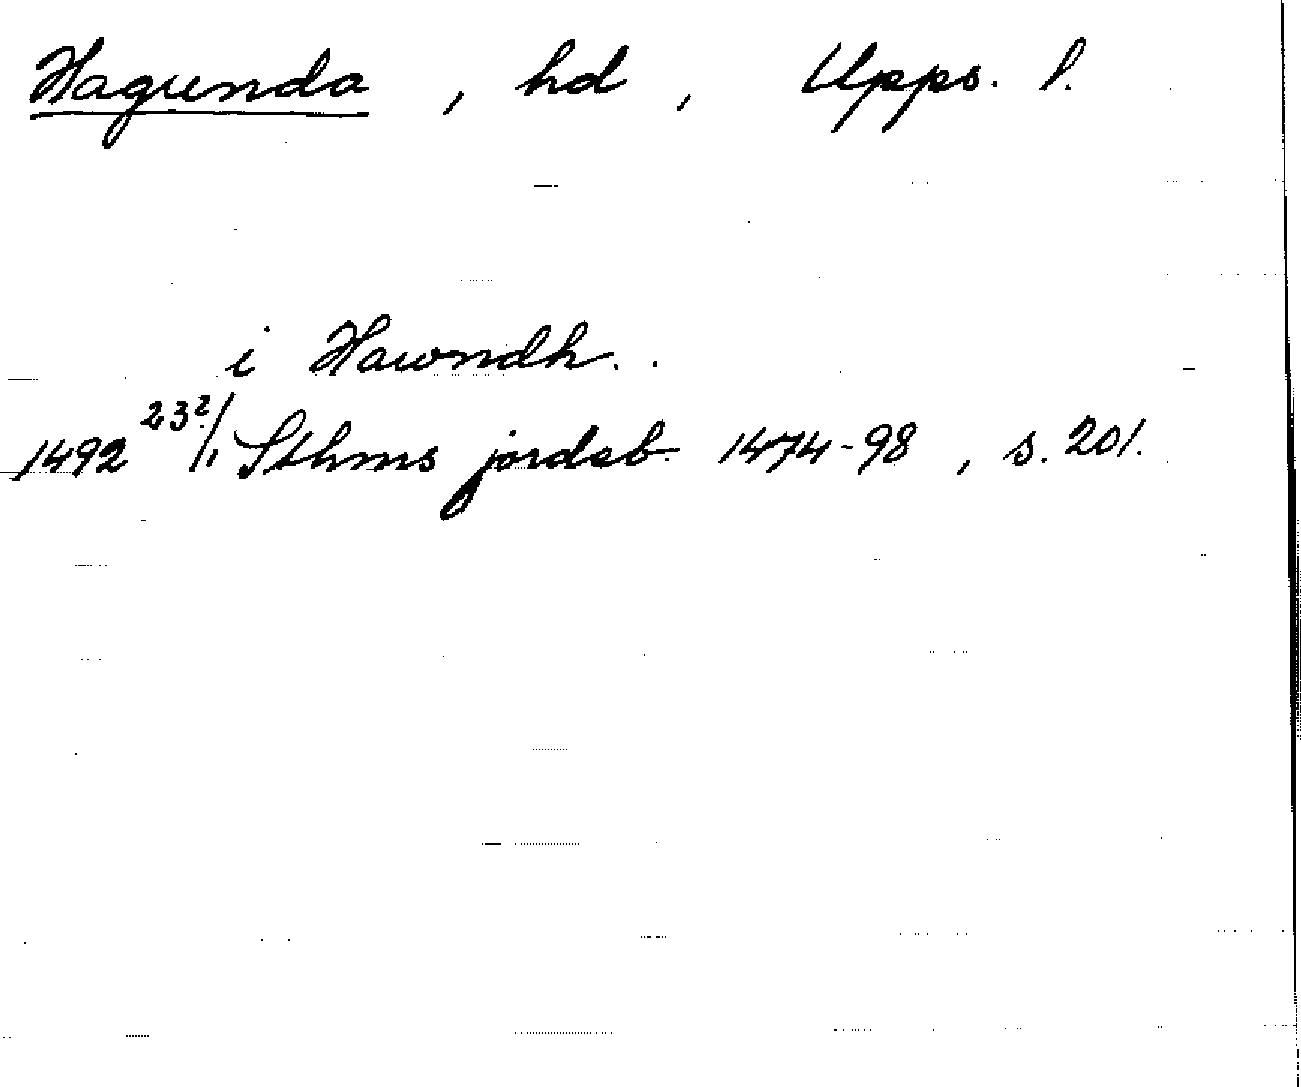 Hagunda, hd, Upps. l.
i Hawndh..
1492 23?/1 Sthms jordab. 1474-98, s. 201.